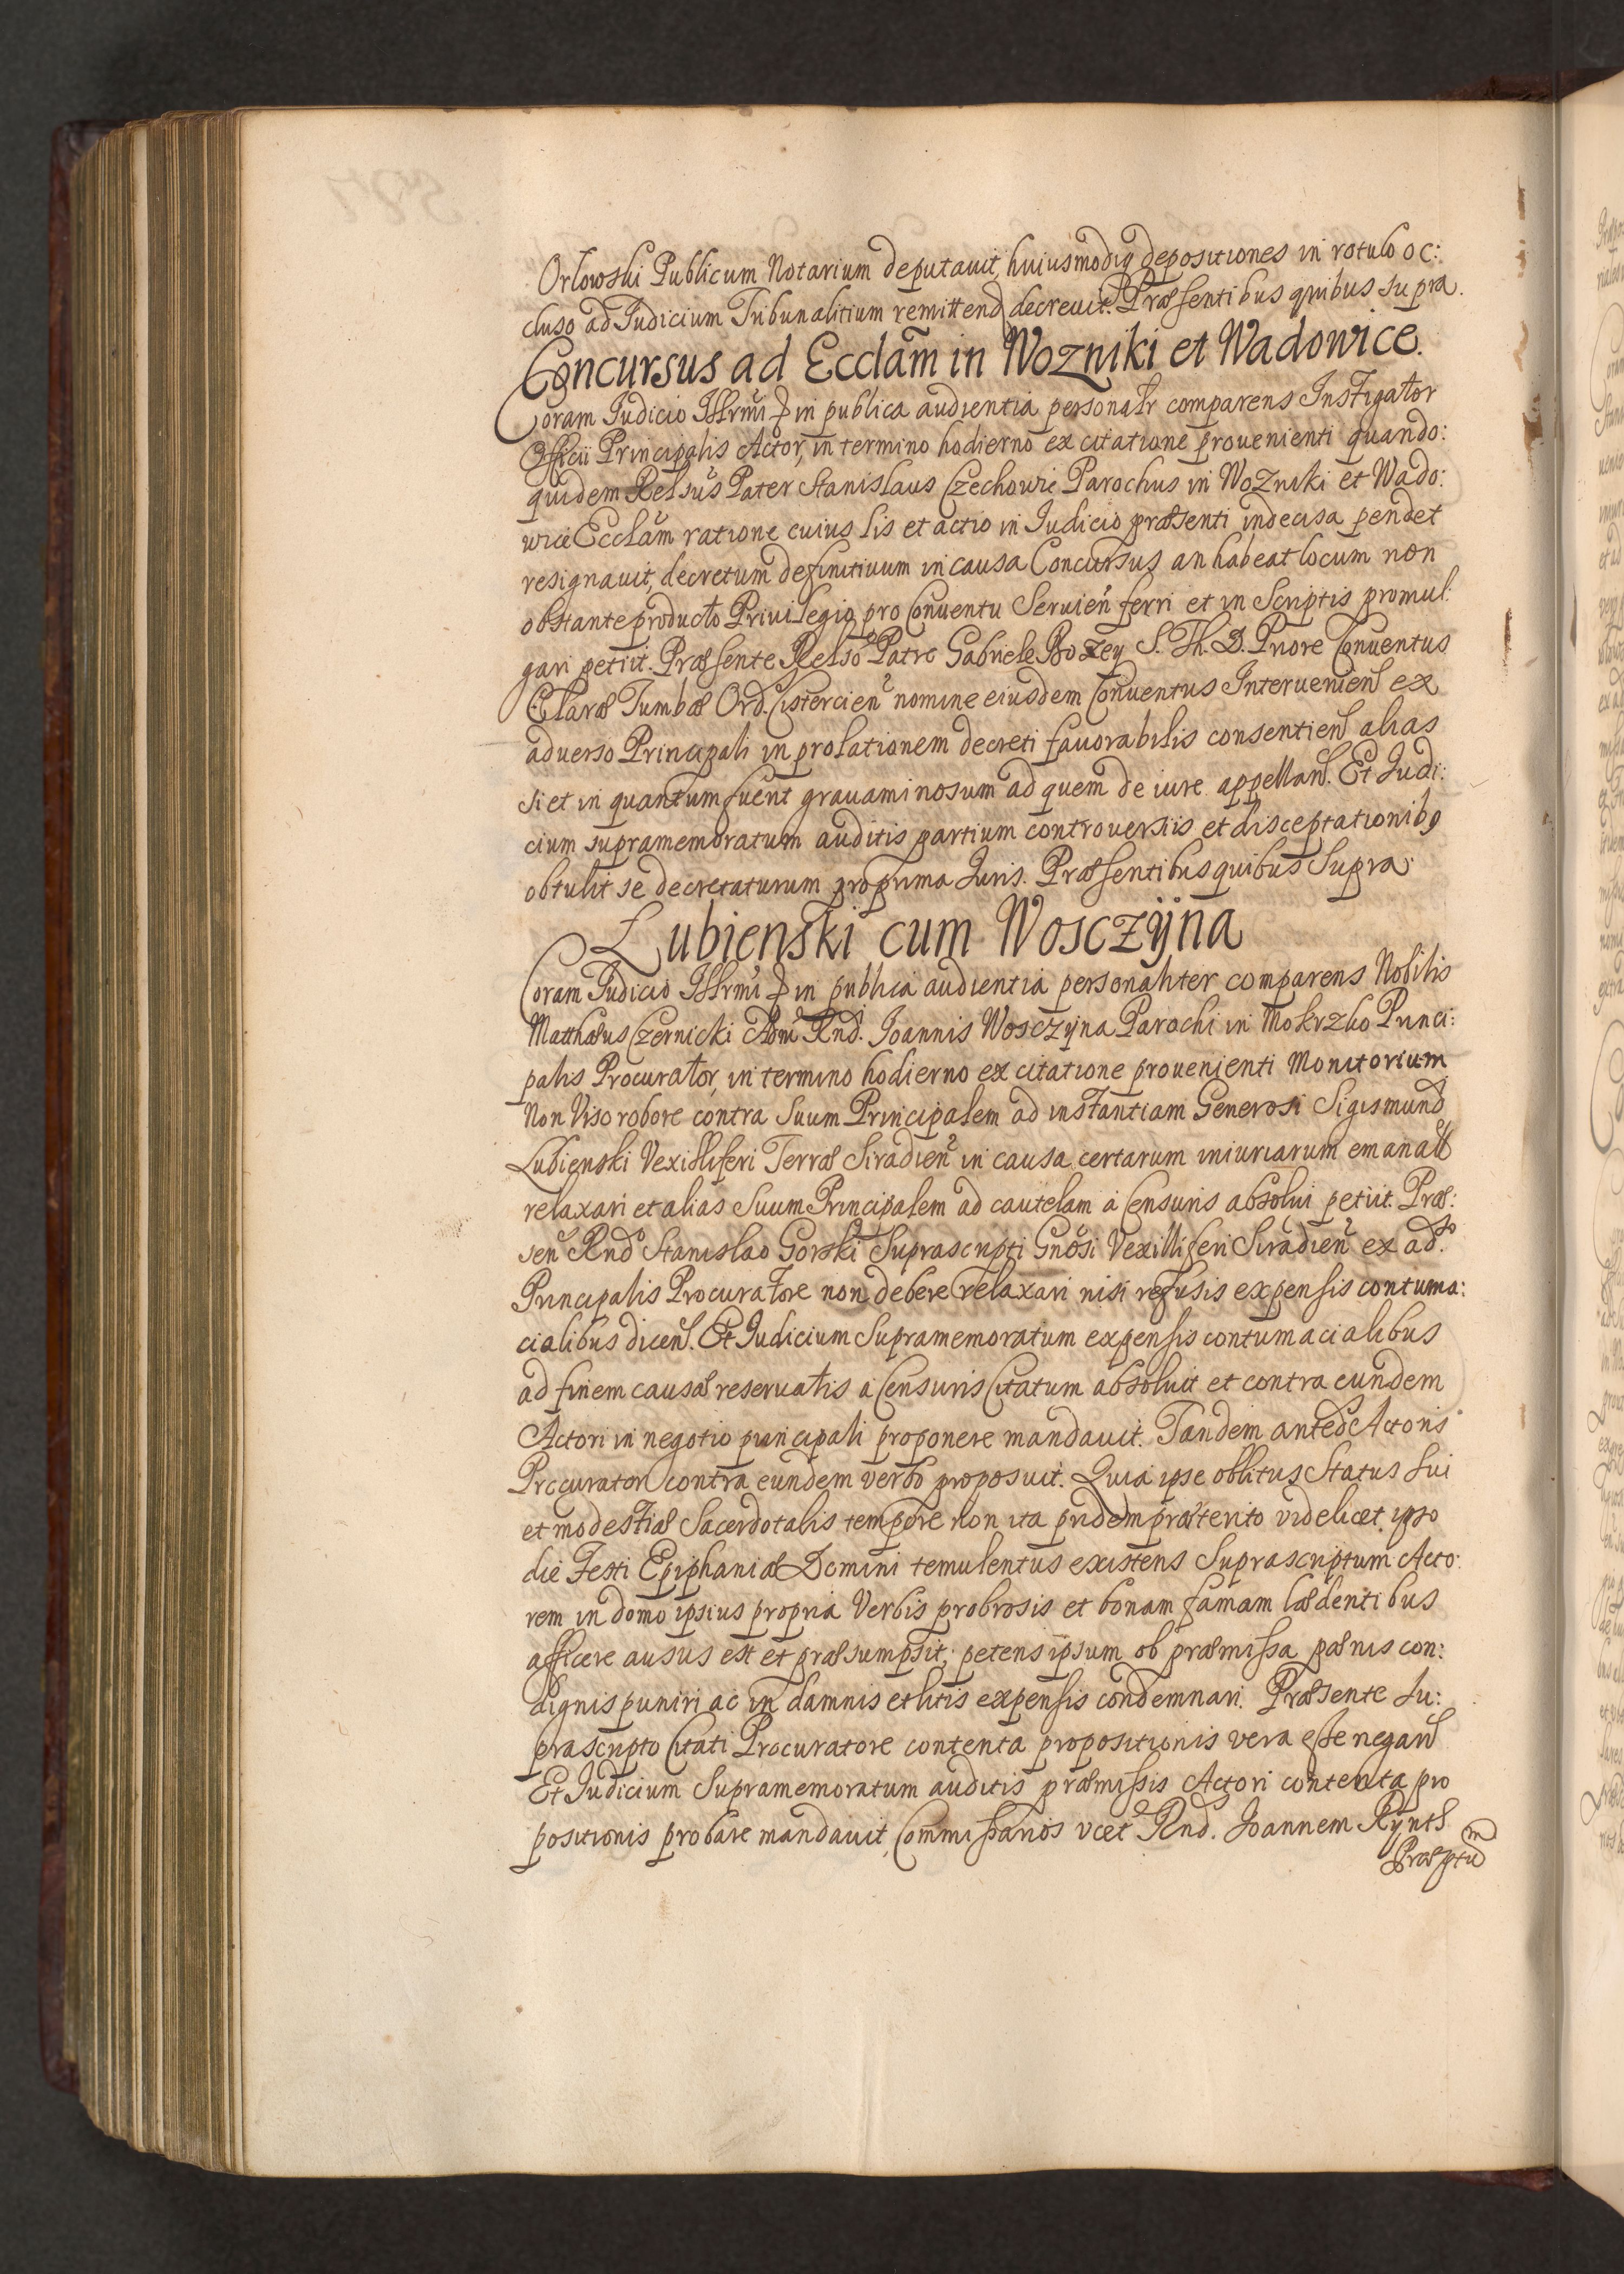 Orłowski Publicum Notarium deputauit, huiusmodiq depositiones in rotulo oc:
cluso ad Judicium Tribunalitium remittend decreuit. Præsentibus quibus supra.
Concursus ad Ecclam in Wozniki et Wadowice.
Coram Judicio Illrmi in publica audientia personalr comparens Instigator
Officii Principalis Actor, in termino hodierno ex citatione prouenienti quando:
quidem Relsus Pater Stanislaus Czechowic Parochus in Wozniki et Wado:
wice Ecclam ratione cuius lis et actio in Judicio præsenti indecisa pendet
resignauit, decretum definitiuum in causa Concursus an habeat locum non
obstante producto Priuilegio pro Conuentu Seruien ferri et in Scriptis promul:
gari petiit. Præsente Relso Patre Gabriele Bozey S. Th. D. Priore Conuentus
Claræ Tumbæ Ord. Cistercien nomine eiusdem Conuentus Interueniens ex
aduerso Principali in prolationem decreti fauorabilis consentiens alias
si et in quantum fuerit grauaminosum ad quem de iure appellans. Et Judi:
cium supramemoratum auditis partium controuersiis et disceptationib9
obtulit se decretaturum pro prima Juris. Præsentibus quibus Supra.
Łubienski cum Wosczÿna
Coram Judicio Illrmi in publica audientia personaliter comparens Nobilis
Matthæus Czernicki Adm Rnd. Joannis Wosczÿna Parochi in Mokrzko Princi:
palis Procurator, in termino hodierno ex citatione prouenienti Monitorium
Non Viso robore contra Suum Principalem ad instantiam Generosi Sigismund
Łubienski Vexilliferi Terræ Siradien in causa certarum iniuriarum emanatt
relaxari et alias Suum Principalem ad cautelam a Censuris absolui petiit. Præ:
sen Rnd Stanislao Gorski Suprascripti Gnosi Vexilliferi Siradien ex ad.so
Principalis Procuratore non debere relaxari nisi refusis expensis contuma:
cialibus dicens. Et Judicium Supramemoratum expensis contumacialibus
ad finem causæ reseruatis a Censuris Citatum absoluit et contra eundem
Actori in negotio principali proponere mandauit. Tandem anted Actoris
Procurator contra eundem verbo proposuit. Quia ipse oblitus Status sui
et modestiæ Sacerdotalis tempore non ita pridem præterito videlicet ipso
die Festi Epiphaniæ Domini temulentus existens Suprascriptum Acto:
rem in domo ipsius propria Verbis probrosis et bonam famam lædentibus
afficere ausus est et præsumpsit; petens ipsum ob præmissa pænis con:
dignis puniri ac in damnis et litis expensis condemnari. Præsente Su:
prascripto Citati Procuratore contenta propositionis vera esse negans
Et Judicium Supramemoratum auditis præmissis Actori contenta pro
positionis probare mandauit, Commissarios vcet Rnd. Joannem Rÿnth
Præptum